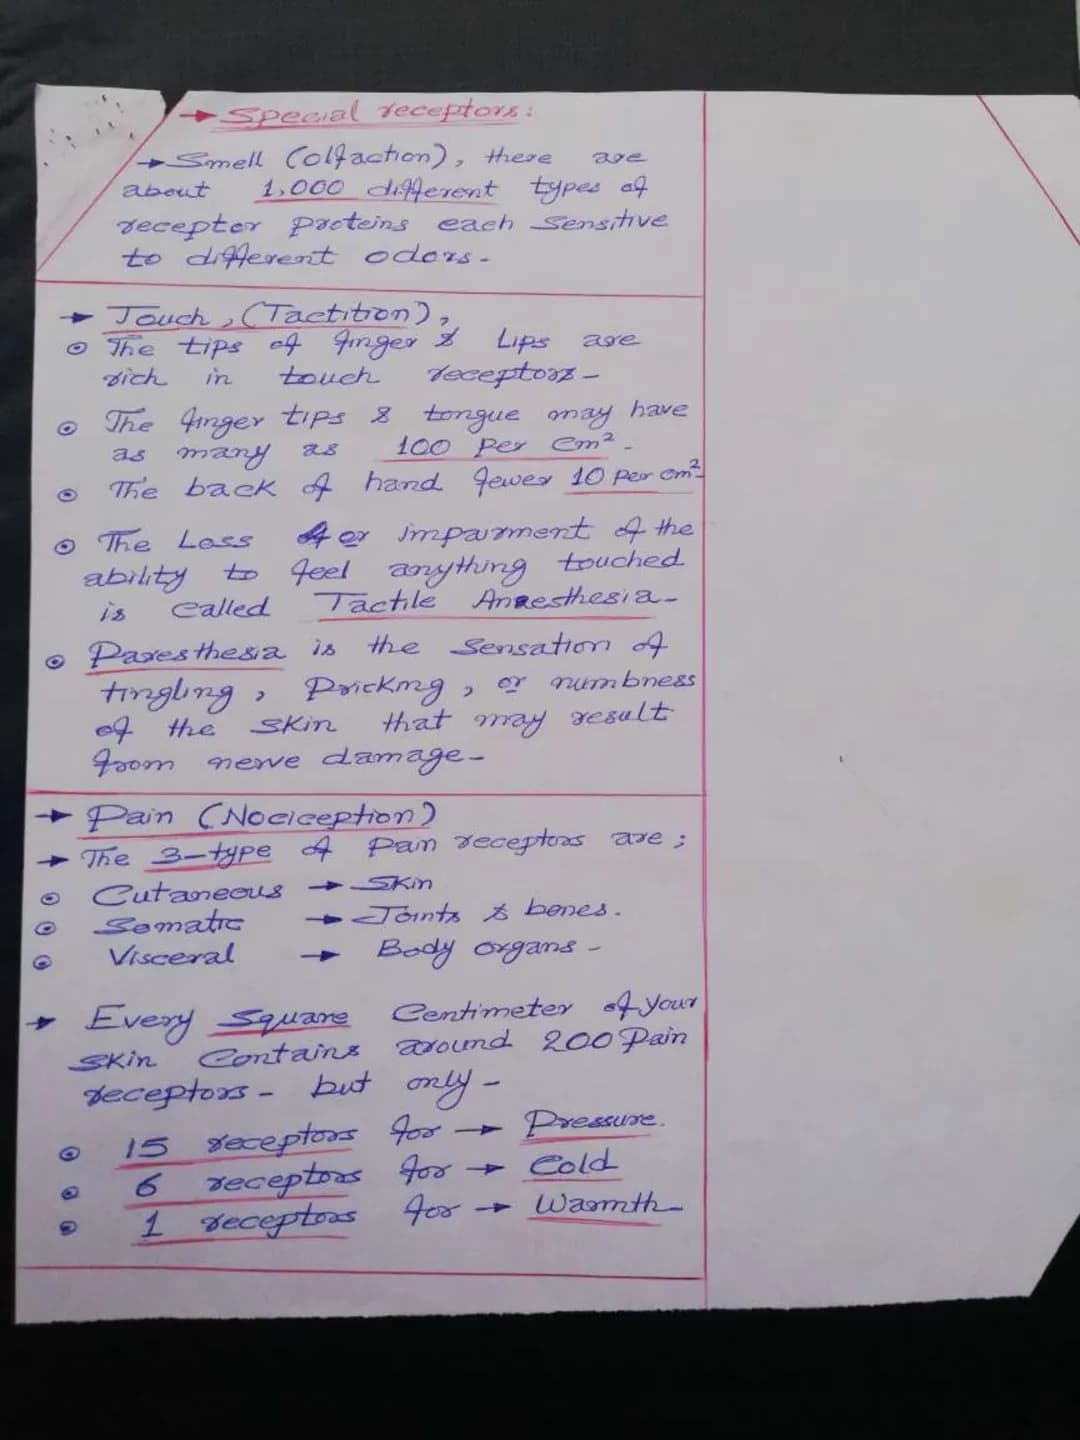 → Special receptors:
→ Smell (Olfaction), there are
about 1,000 different types of
receptor proteins each Sensitive
to different odors.
→ Touch, (Tactition),
⊙ The tips of finger & Lips are
rich in touch receptors-
⊙ The finger tips & tongue may have
as many as 100 Per Cm².
⊙ The back of hand fewer 10 per cm²
⊙ The Loss or impairment of the
ability to feel anything touched
is Called Tactile Anaesthesia-
⊙ Paresthesia is the Sensation of
tingling, Pricking, or numbness
of the Skin that may result
from nerve damage-
→ Pain (Nociception)
→ The 3-type of Pain receptors are;
⊙ Cutaneous → Skin
⊙ Somatic → Joints & bones.
⊙ Visceral → Body organs-
→ Every Square Centimeter of your
Skin Contains around 200 Pain
receptors- but only-
⊙ 15 receptors for → Pressure.
⊙ 6 receptors for → Cold
⊙ 1 receptors for → Warmth-